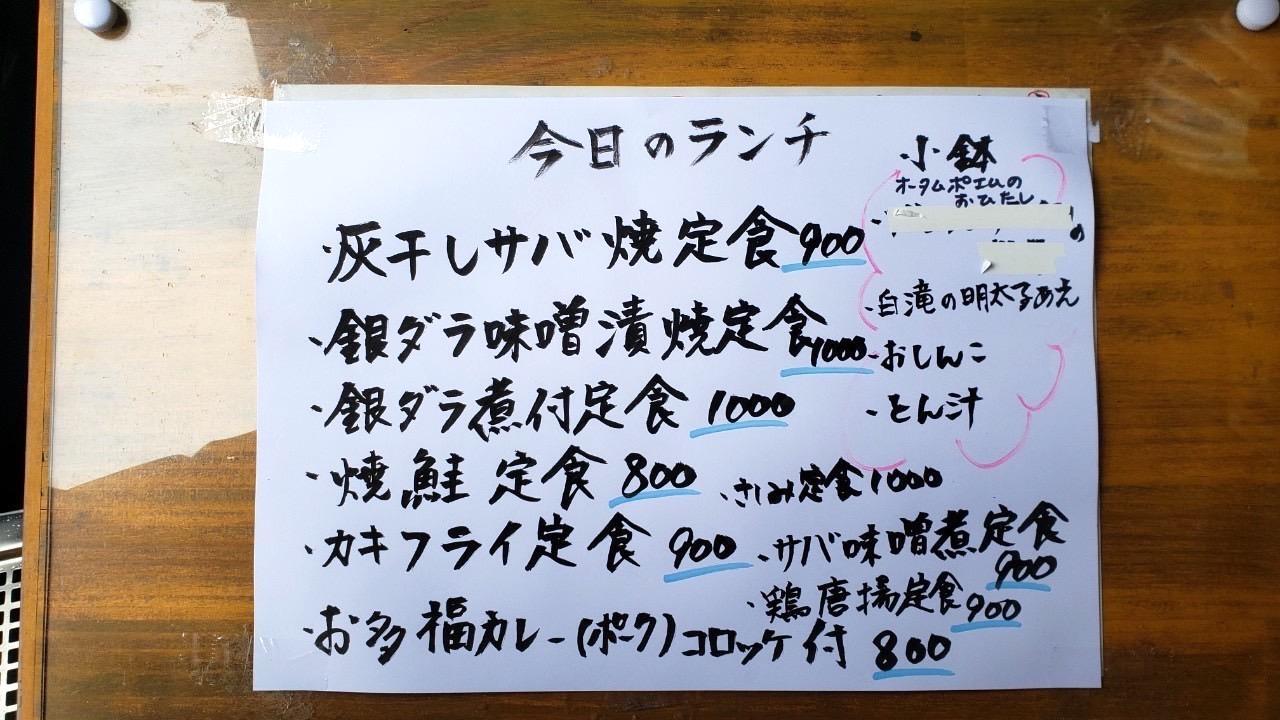 今日のランチ
・灰干しサバ焼定食900
・銀ダラ味噌漬焼定食1000
・銀ダラ煮付定食 1000
・焼鮭定食 800
・さしみ定食1000
・カキフライ定食 900
・サバ味噌煮定食
900
・鶏唐揚定食900
・お多福カレー(ポーク)コロッケ付 800
小鉢
オータムポエムの
おひたし
・白滝の明太子あえ
・おしんこ
・とん汁